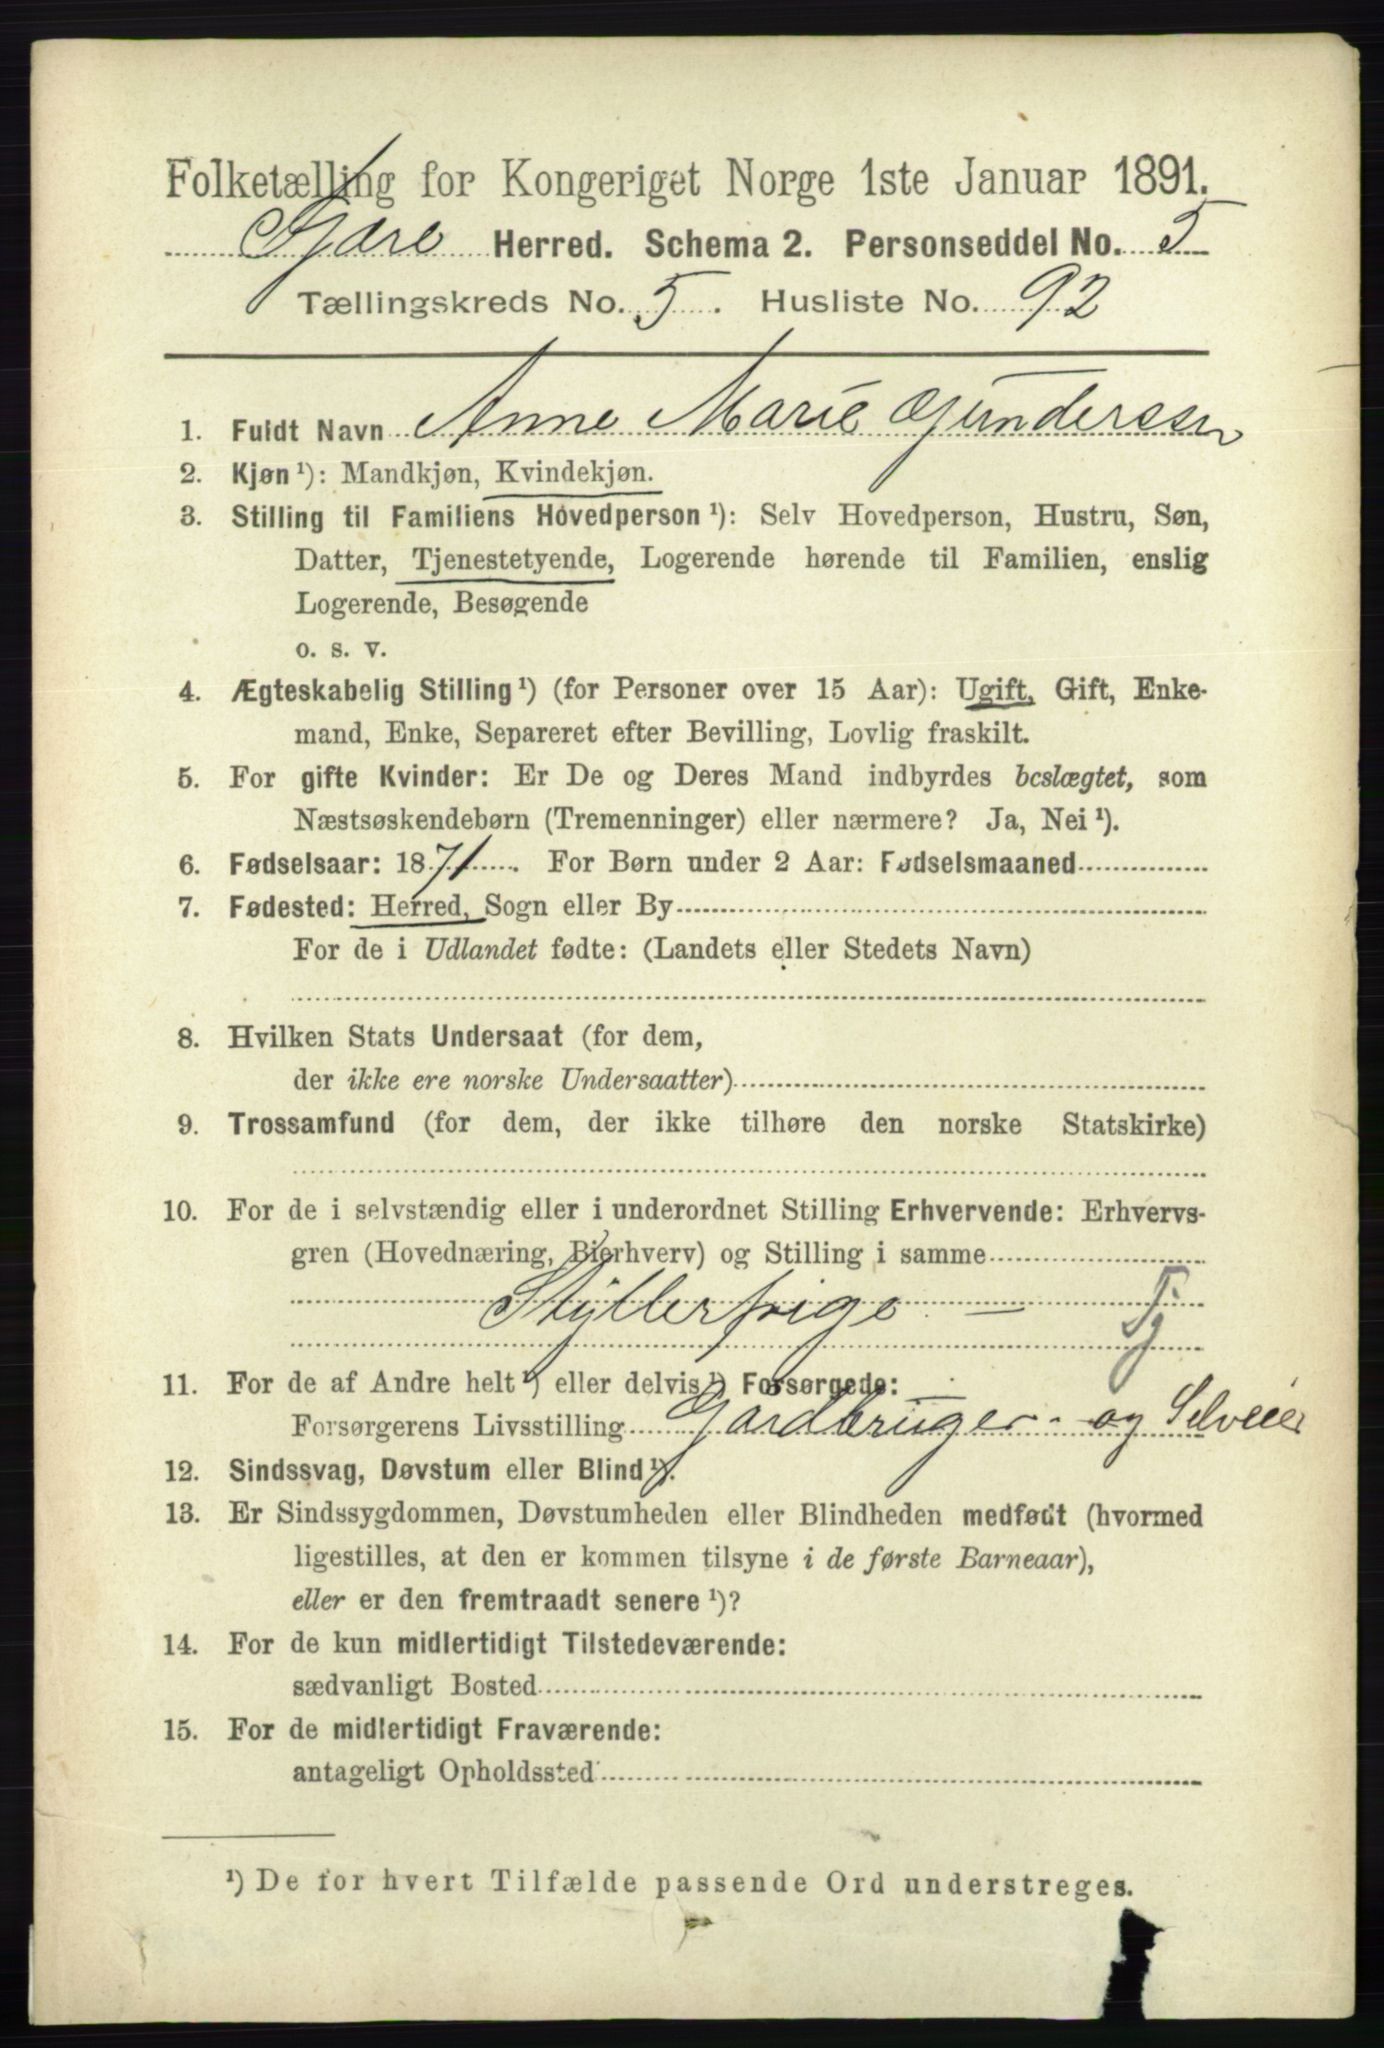 Folketælling for Kongeriget Norge 1ste Januar 1891.
Herred. Schema 2. Personseddel No. 5
Tællingskreds No. 5. Husliste No. 92
1. Fuldt Navn Anne Marie Gunderssen
2. Kjøn ¹): Mandkjøn, Kvindekjøn.
3. Stilling til Familiens Hovedperson ¹): Selv Hovedperson, Hustru, Søn,
Datter, Tjenestetyende, Logerende hørende til Familien, enslig
Logerende, Besøgende
o. s. v.
4. Ægteskabelig Stilling ¹) (for Personer over 15 Aar): Ugift, Gift, Enke-
mand, Enke, Separeret efter Bevilling, Lovlig fraskilt.
5. For gifte Kvinder: Er De og Deres Mand indbyrdes beslægtet, som
Næstsøskendebørn (Tremenninger) eller nærmere? Ja, Nei ¹).
6. Fødselsaar: 1871. For Børn under 2 Aar: Fødselsmaaned
7. Fødested: Herred, Sogn eller By
For de i Udlandet fødte: (Landets eller Stedets Navn)
8. Hvilken Stats Undersaat (for dem,
der ikke ere norske Undersaatter)
9. Trossamfund (for dem, der ikke tilhøre den norske Statskirke)
10. For de i selvstændig eller i underordnet Stilling Erhvervende: Erhvervs-
gren (Hovednæring, Bierhverv) og Stilling i samme
Tj
11. For de af Andre helt ¹) eller delvis ¹) Forsørgede:
Forsørgerens Livsstilling Gardbruger og Selveier
12. Sindssvag, Døvstum eller Blind ¹).
13. Er Sindssygdommen, Døvstumheden eller Blindheden medfødt (hvormed
ligestilles, at den er kommen tilsyne i de første Barneaar),
eller er den fremtraadt senere ¹)?
14. For de kun midlertidigt Tilstedeværende:
sædvanligt Bosted
15. For de midlertidigt Fraværende:
antageligt Opholdssted
¹) De for hvert Tilfælde passende Ord understreges.